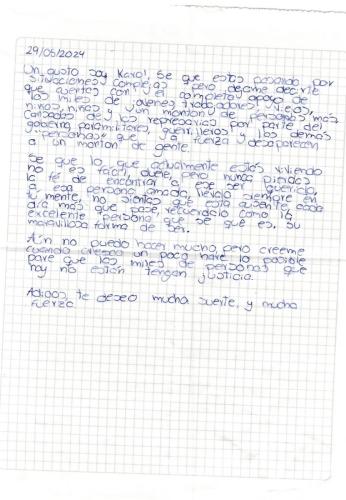 29/05/2024
Un gusto soy Karol, Se que estas pasando por
situaciones complejas pero dejame decirte
que cuentas con el completo apoyo de
los miles de jovenes, trabajadores, viejos,
niños, niñas y un monton de personas mas
cansadas de las represarias por parte del
gobierno, paramilitares, guerrilleros y los demás
"personas" que a fuerza desaparecen
a un monton de gente.
Se que lo que actualmente estas viviendo
no es facil, duele, pero nunca pierdas
la fé de encontrar a ese ser querido,
a esa persona amada, llevalo siempre en
tu mente, no sientas que esta ausente cada
dia mas que pase, recuerdalo como la
excelente persona que se que es, su
maravillosa forma de ser.
Aún no puedo hacer mucho, pero creeme
cuando crezca un poco haré lo posible
pare que los miles de personas que
hoy no estan tengan justicia.
Adioos te deseo mucha suerte, y mucha
fuerza.